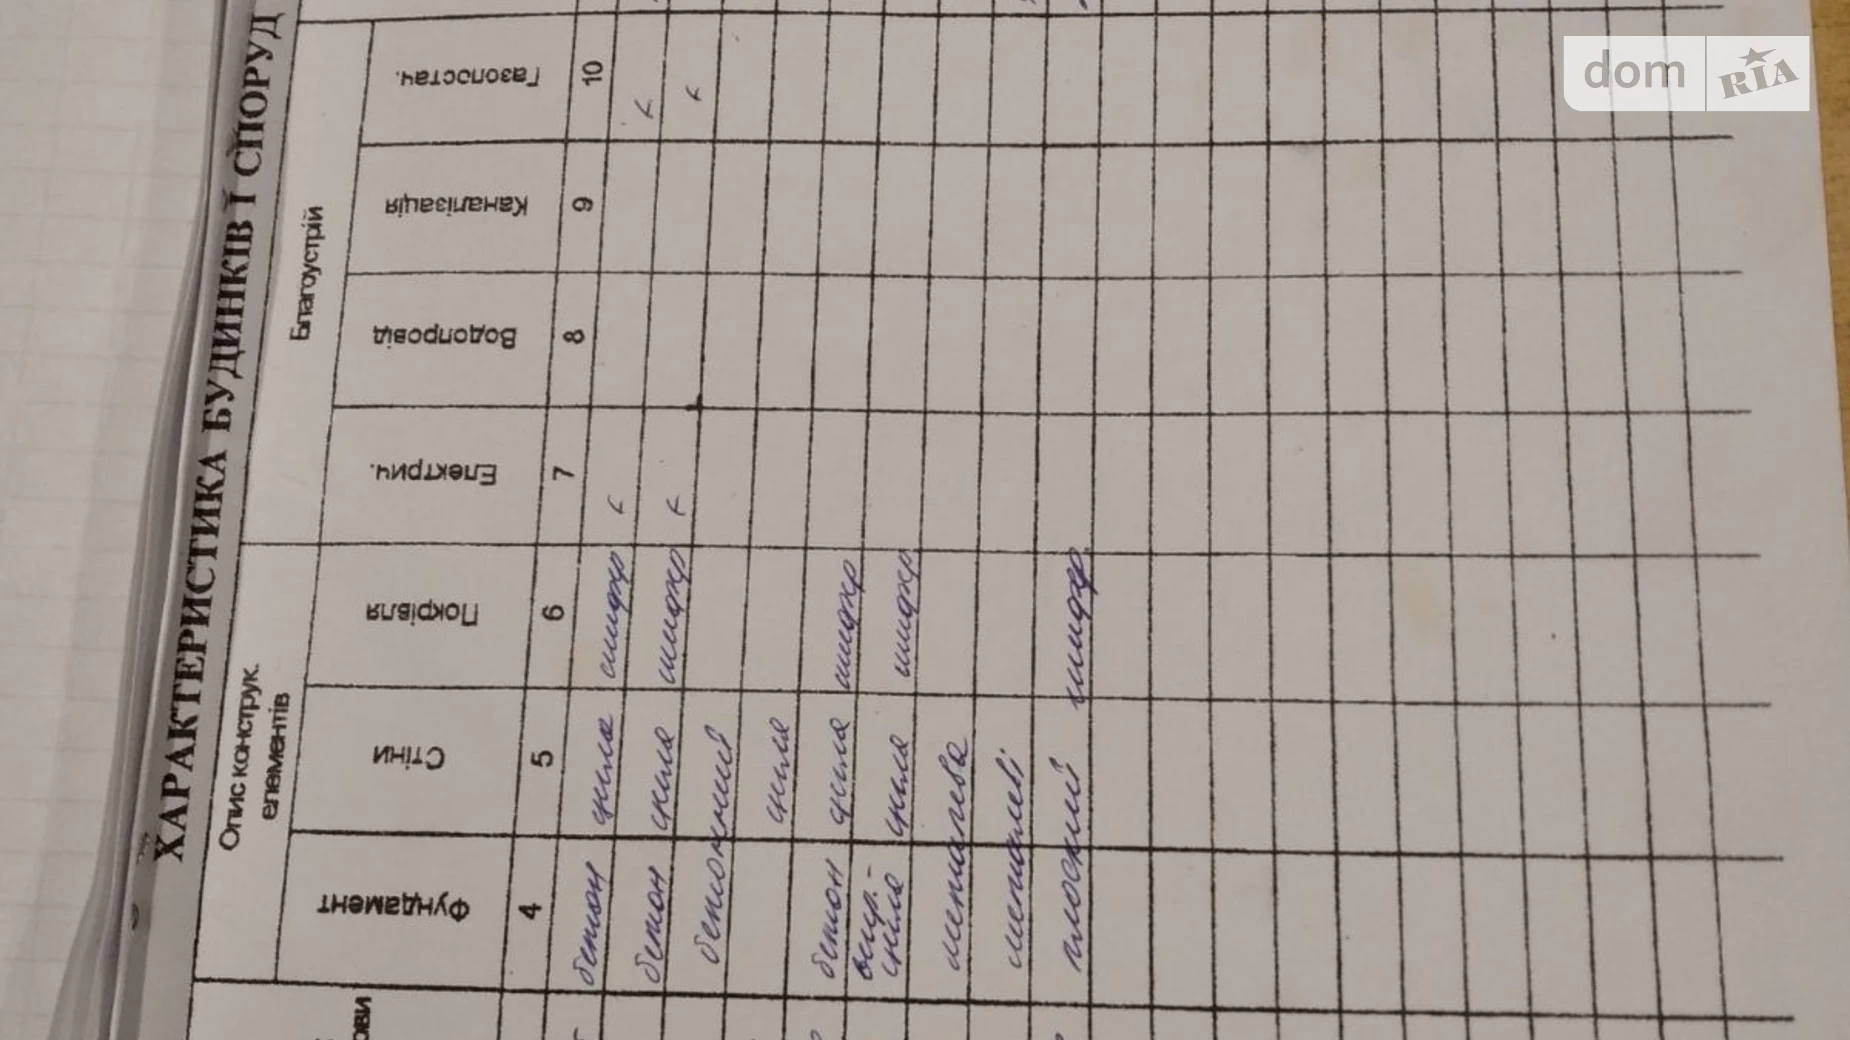 ХАРАКТЕРИСТИКА БУДИНКІВ І СПОРУД
Опис конструк. елементів
Благоустрій
Фундамент Стіни Покрівля Електрич. Водопровід Каналізація Газопостач.
4 5 6 7 8 9 10
бетон цегла шифер
бетон цегла шифер
бетонний
цегла
бетон цегла шифер
цегла цегла шифер
металева
металеві
плоский шифер
dom RIA